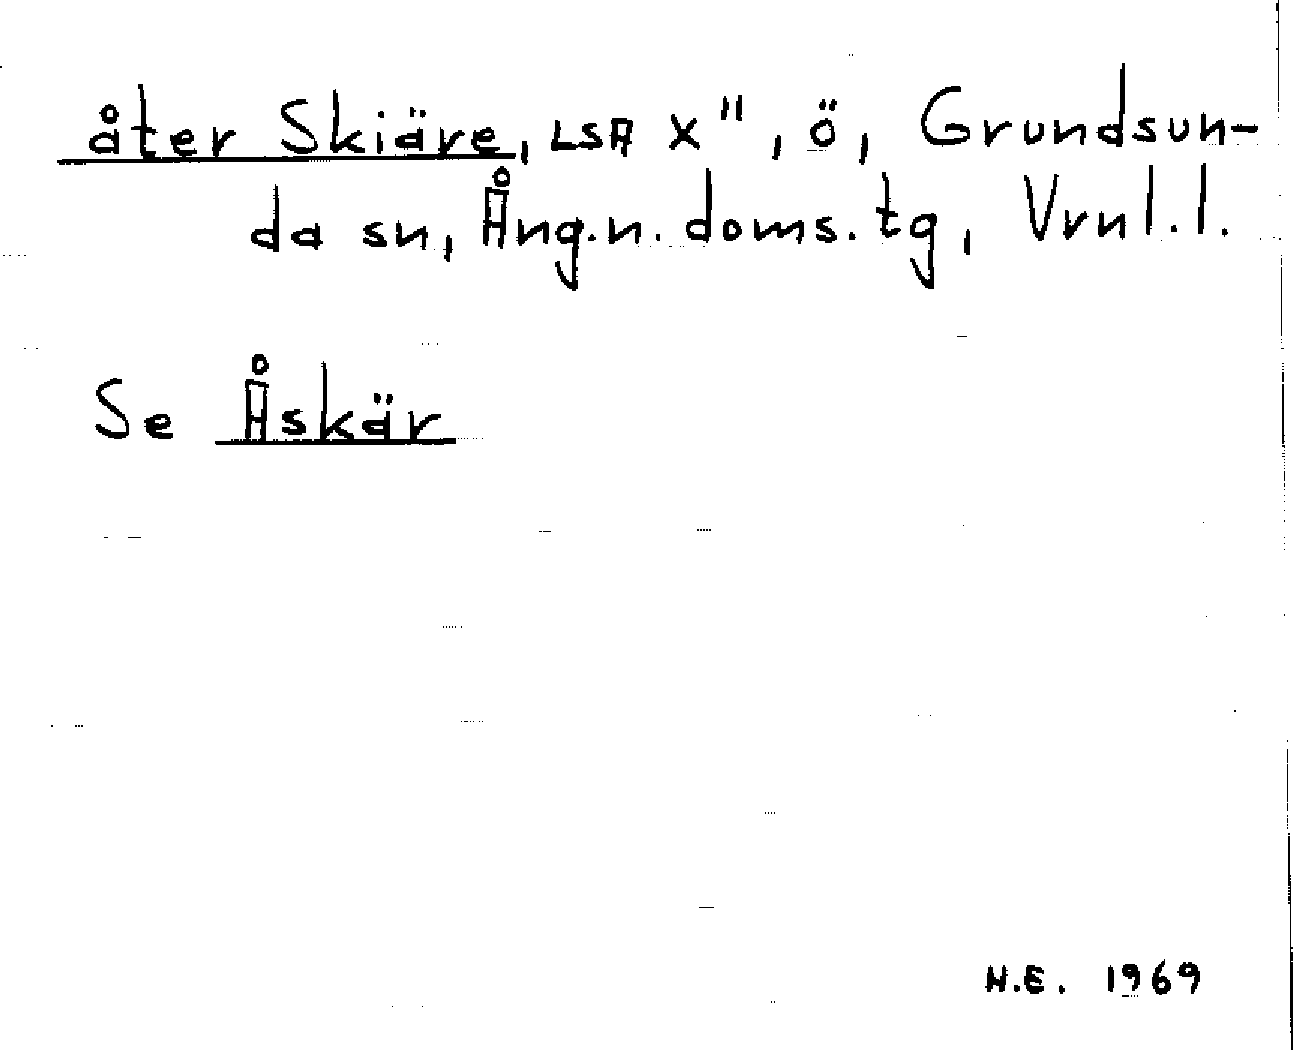 åter Skiäre, LSA X", ö, Grundsun-
da sn, Ång.n. doms. tg, Vrnl.l.
Se Åskär
N.E. 1969